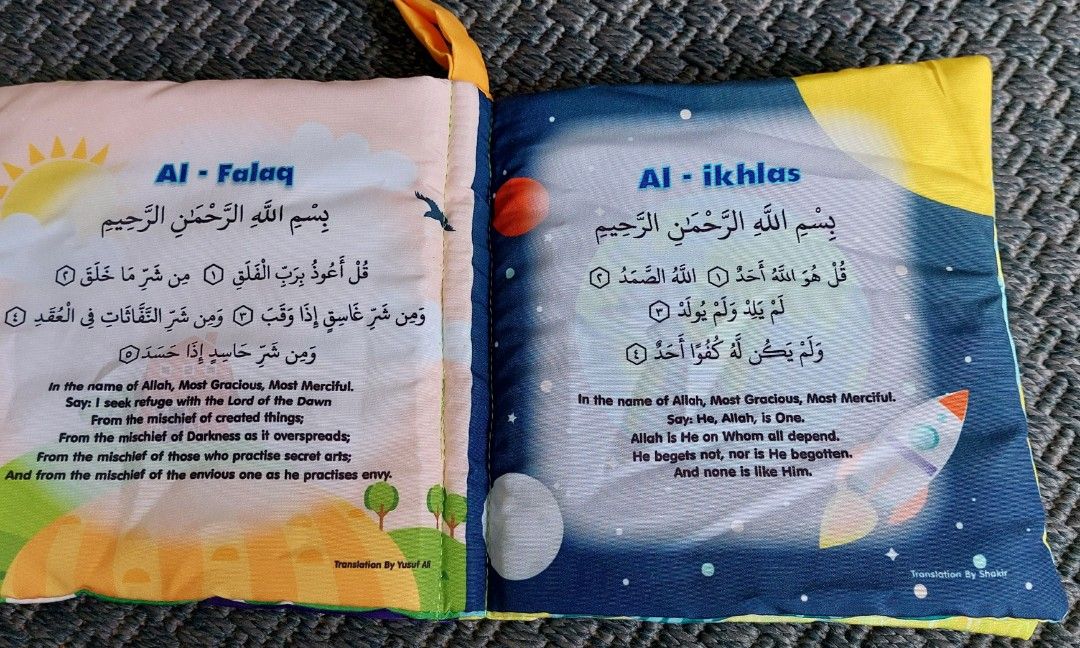 Al - Falaq
بِسْمِ اللَّهِ الرَّحْمَٰنِ الرَّحِيمِ
قُلْ أَعُوذُ بِرَبِّ الْفَلَقِ ﴿١﴾ مِن شَرِّ مَا خَلَقَ ﴿٢﴾
وَمِن شَرِّ غَاسِقٍ إِذَا وَقَبَ ﴿٣﴾ وَمِن شَرِّ النَّفَّاثَاتِ فِي الْعُقَدِ ﴿٤﴾
وَمِن شَرِّ حَاسِدٍ إِذَا حَسَدَ ﴿٥﴾
In the name of Allah, Most Gracious, Most Merciful.
Say: I seek refuge with the Lord of the Dawn
From the mischief of created things;
From the mischief of Darkness as it overspreads;
From the mischief of those who practise secret arts;
And from the mischief of the envious one as he practises envy.
Translation By Yusuf Ali
Al - ikhlas
بِسْمِ اللَّهِ الرَّحْمَٰنِ الرَّحِيمِ
قُلْ هُوَ اللَّهُ أَحَدٌ ﴿١﴾ اللَّهُ الصَّمَدُ ﴿٢﴾
لَمْ يَلِدْ وَلَمْ يُولَدْ ﴿٣﴾
وَلَمْ يَكُن لَّهُ كُفُوًا أَحَدٌ ﴿٤﴾
In the name of Allah, Most Gracious, Most Merciful.
Say: He, Allah, is One.
Allah is He on Whom all depend.
He begets not, nor is He begotten.
And none is like Him.
Translation By Shakir